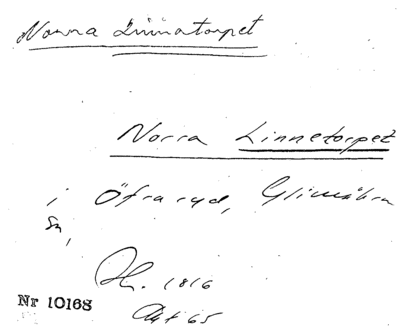 Norra Linnatorpet
Norra Linnetorpet
i Öfraryd, Glimåkra
sn,
Hs. 1816
Akt 65
Nr 10168